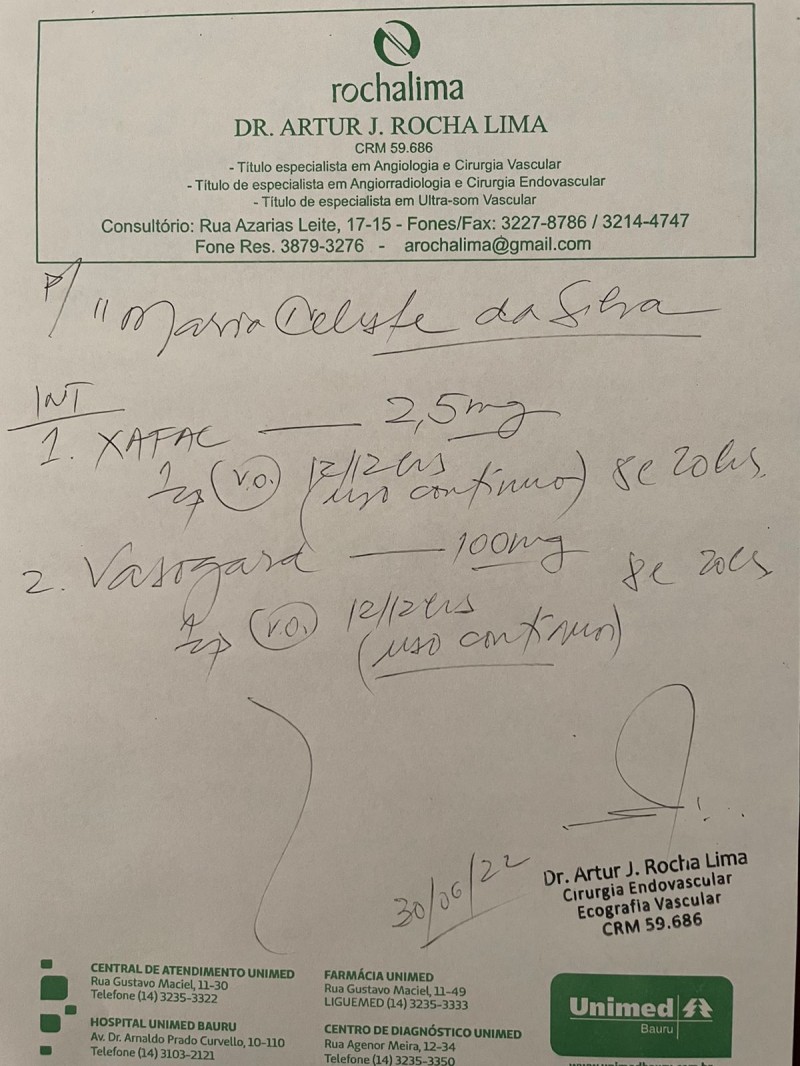 rochalima
DR. ARTUR J. ROCHA LIMA
CRM 59.686
- Título especialista em Angiologia e Cirurgia Vascular
- Título de especialista em Angiorradiologia e Cirurgia Endovascular
- Título de especialista em Ultra-som Vascular
Consultório: Rua Azarias Leite, 17-15 - Fones/Fax: 3227-8786 / 3214-4747
Fone Res. 3879-3276 - arochalima@gmail.com
P/ " Maria Celeste da Silva
INT
1. XAFAC — 2,5mg
(V.O.) 12/12hs
(uso contínuo) 8 e 20hs
2. Vasogard — 100mg
8 e 20hs
(V.O.) 12/12hs
(uso contínuo)
30/06/22
Dr. Artur J. Rocha Lima
Cirurgia Endovascular
Ecografia Vascular
CRM 59.686
CENTRAL DE ATENDIMENTO UNIMED
Rua Gustavo Maciel, 11-30
Telefone (14) 3235-3322
HOSPITAL UNIMED BAURU
Av. Dr. Arnaldo Prado Curvello, 10-110
Telefone (14) 3103-2121
FARMÁCIA UNIMED
Rua Gustavo Maciel, 11-49
LIGUEMED (14) 3235-3333
CENTRO DE DIAGNÓSTICO UNIMED
Rua Agenor Meira, 12-34
Telefone (14) 3235-3350
Unimed
Bauru